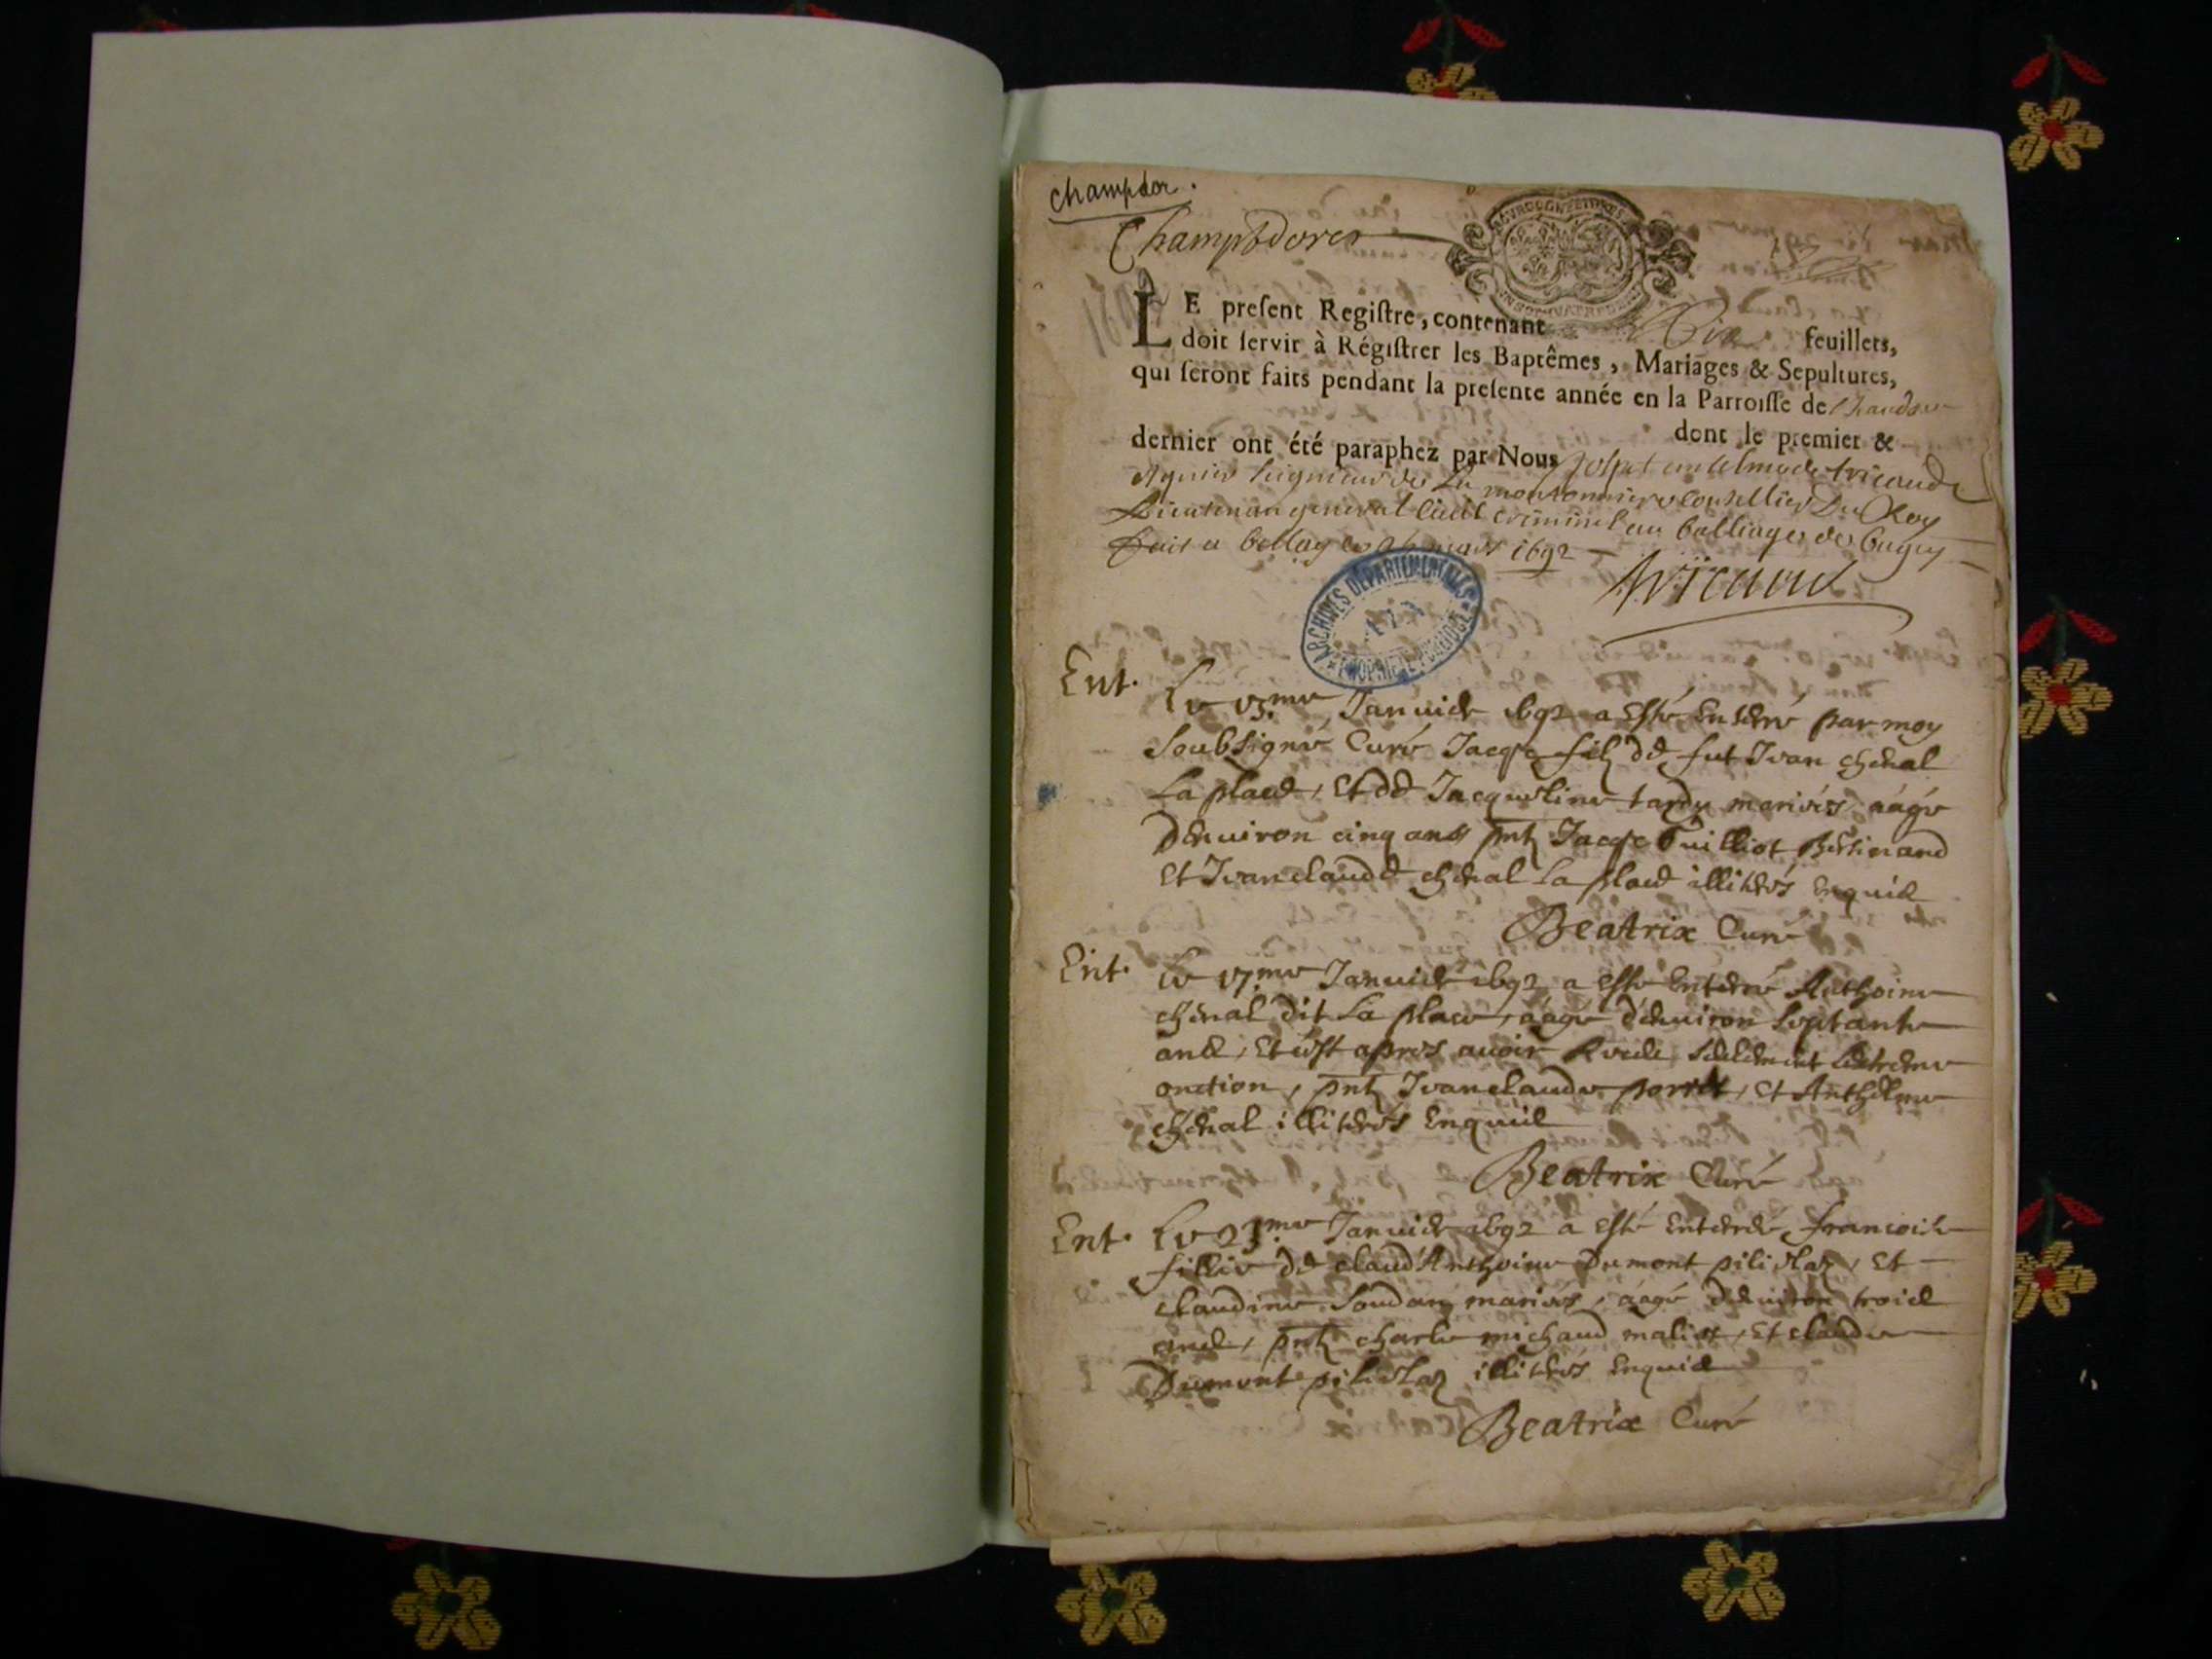 champdor.
Champdores
LE present Registre, contenant Six feuillets,
doit servir à Régistrer les Baptêmes, Mariages & Sepultures,
qui seront faits pendant la presente année en la Parroisse de
dont le premier &
dernier ont été paraphez par Nous de tricaud
seigneur de La Conseillier Du Roy
Lieutenan general Civil criminel au balliage de bugey
fait a bellay mars 1692
Tricaud
ARCHIVES DÉPARTEMENTALES
PROPRIÉTÉ PUBLIQUE
Ent. Le 13.me Januier 1692 a esté enterré par moy
soubsigné Curé Jacqe filz de fut Jean cheual
La place, et de Jacqueline tardy mariés, aágé
denuiron cinq ans pnts Jacqe Guilliot
et Jean claude cheual La place illiterés enquis
Beatrix Curé
Ent. Le 17.me Januier 1692 a esté enterré Anthoine
cheual dit La place, aágé denuiron septante
ans, et cest apres auoir lextreme
onction, pnts Jean claude perret, et Anthelme
cheual illiterés enquis
Beatrix Curé
Ent. Le 23.me Januier 1692 a esté enterrée francoise
fillie de claud Anthoine Dumont et
claudine mariés, aágé denuiron trois
ans, pnts charle michaud et claude
Dumont illiterés enquis
Beatrix Curé